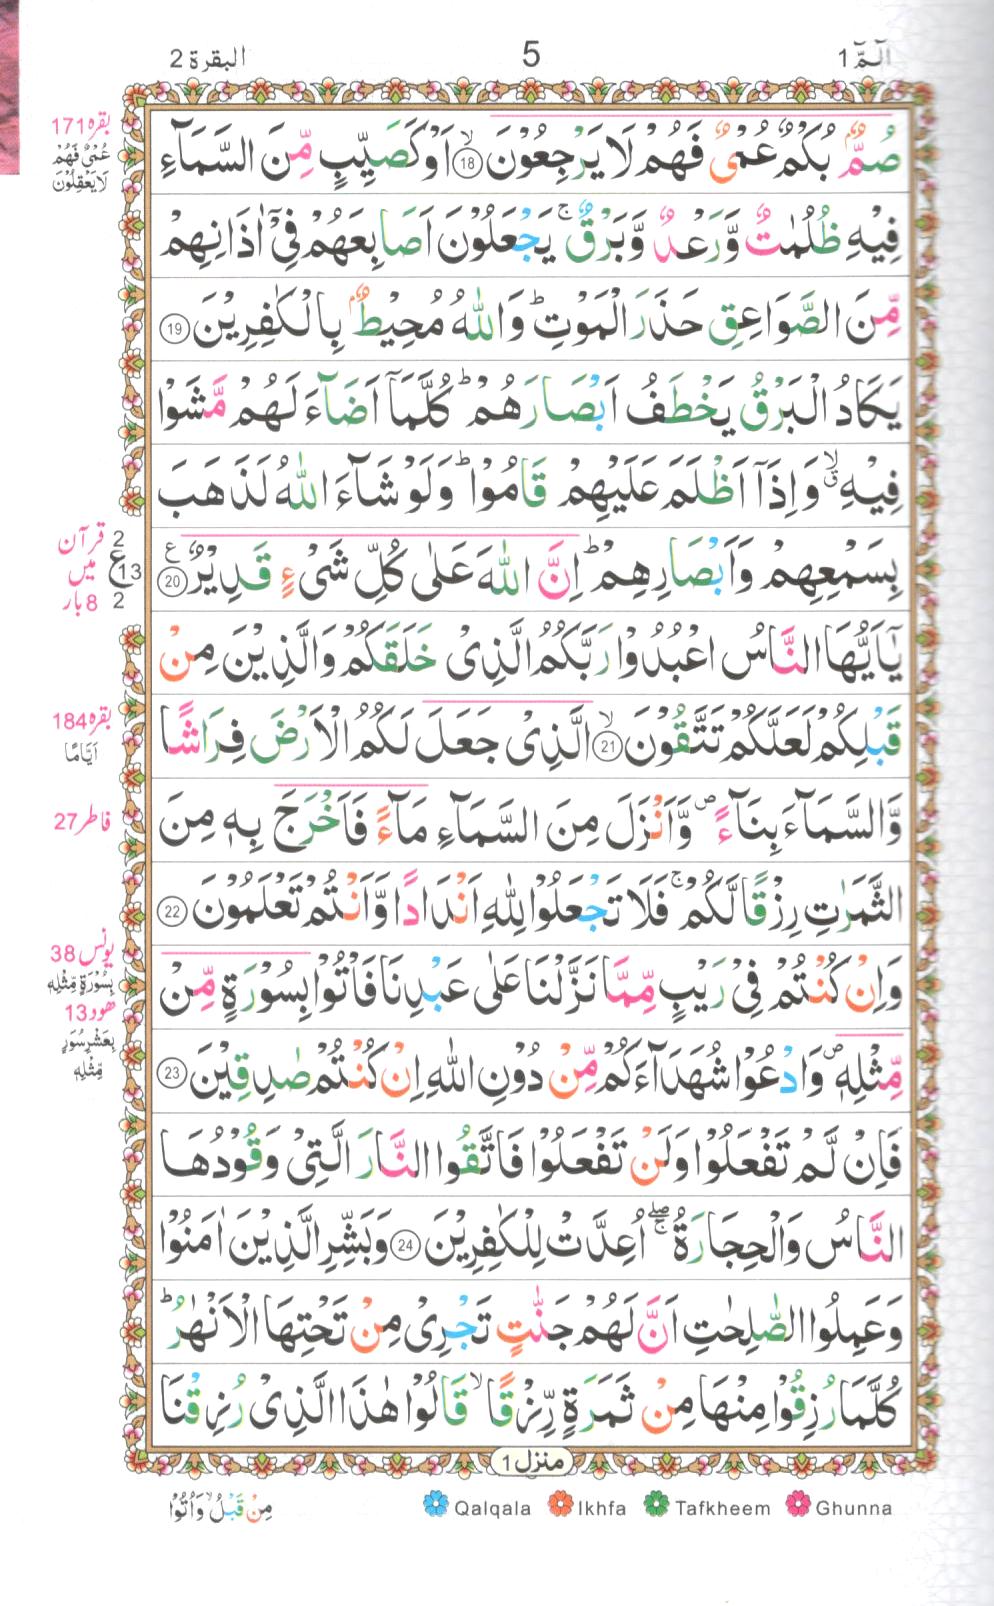 الٓمّٓ 1
5
البقرة 2
صُمٌّۢ بُكْمٌ عُمْیٌ فَهُمْ لَا یَرْجِعُوْنَ ۙ 18 اَوْ كَصَیِّبٍ مِّنَ السَّمَآءِ
فِیْهِ ظُلُمٰتٌ وَّرَعْدٌ وَّبَرْقٌ ۚ یَجْعَلُوْنَ اَصَابِعَهُمْ فِیْۤ اٰذَانِهِمْ
مِّنَ الصَّوَاعِقِ حَذَرَ الْمَوْتِ ؕ وَاللّٰهُ مُحِیْطٌۢ بِالْكٰفِرِیْنَ 19
یَكَادُ الْبَرْقُ یَخْطَفُ اَبْصَارَهُمْ ؕ كُلَّمَاۤ اَضَآءَ لَهُمْ مَّشَوْا
فِیْهِ ۙۗ وَاِذَاۤ اَظْلَمَ عَلَیْهِمْ قَامُوْا ؕ وَلَوْ شَآءَ اللّٰهُ لَذَهَبَ
بِسَمْعِهِمْ وَاَبْصَارِهِمْ ؕ اِنَّ اللّٰهَ عَلٰى كُلِّ شَیْءٍ قَدِیْرٌ ع 20
یٰۤاَیُّهَا النَّاسُ اعْبُدُوْا رَبَّكُمُ الَّذِیْ خَلَقَكُمْ وَالَّذِیْنَ مِنْ
قَبْلِكُمْ لَعَلَّكُمْ تَتَّقُوْنَ ۙ 21 الَّذِیْ جَعَلَ لَكُمُ الْاَرْضَ فِرَاشًا
وَّالسَّمَآءَ بِنَآءً ۪ وَّاَنْزَلَ مِنَ السَّمَآءِ مَآءً فَاَخْرَجَ بِهٖ مِنَ
الثَّمَرٰتِ رِزْقًا لَّكُمْ ۚ فَلَا تَجْعَلُوْا لِلّٰهِ اَنْدَادًا وَّاَنْتُمْ تَعْلَمُوْنَ 22
وَاِنْ كُنْتُمْ فِیْ رَیْبٍ مِّمَّا نَزَّلْنَا عَلٰى عَبْدِنَا فَاْتُوْا بِسُوْرَةٍ مِّنْ
مِّثْلِهٖ ۪ وَادْعُوْا شُهَدَآءَكُمْ مِّنْ دُوْنِ اللّٰهِ اِنْ كُنْتُمْ صٰدِقِیْنَ 23
فَاِنْ لَّمْ تَفْعَلُوْا وَلَنْ تَفْعَلُوْا فَاتَّقُوا النَّارَ الَّتِیْ وَقُوْدُهَا
النَّاسُ وَالْحِجَارَةُ ۖۚ اُعِدَّتْ لِلْكٰفِرِیْنَ 24 وَبَشِّرِ الَّذِیْنَ اٰمَنُوْا
وَعَمِلُوا الصّٰلِحٰتِ اَنَّ لَهُمْ جَنّٰتٍ تَجْرِیْ مِنْ تَحْتِهَا الْاَنْهٰرُ ؕ
كُلَّمَا رُزِقُوْا مِنْهَا مِنْ ثَمَرَةٍ رِّزْقًا ۙ قَالُوْا هٰذَا الَّذِیْ رُزِقْنَا
بقره 171
عُمْیٌ فَهُمْ
لَا یَعْقِلُوْنَ
2
قرآن
ع 13
میں
2
8 بار
بقره 184
اَیَّامًا
فاطر 27
یونس 38
بِسُوْرَةٍ مِّثْلِهٖ
هود 13
بِعَشْرِ سُوَرٍ
مِّثْلِهٖ
منزل 1
Qalqala Ikhfa Tafkheem Ghunna
مِنْ قَبْلُ ۙ وَاُتُوْا